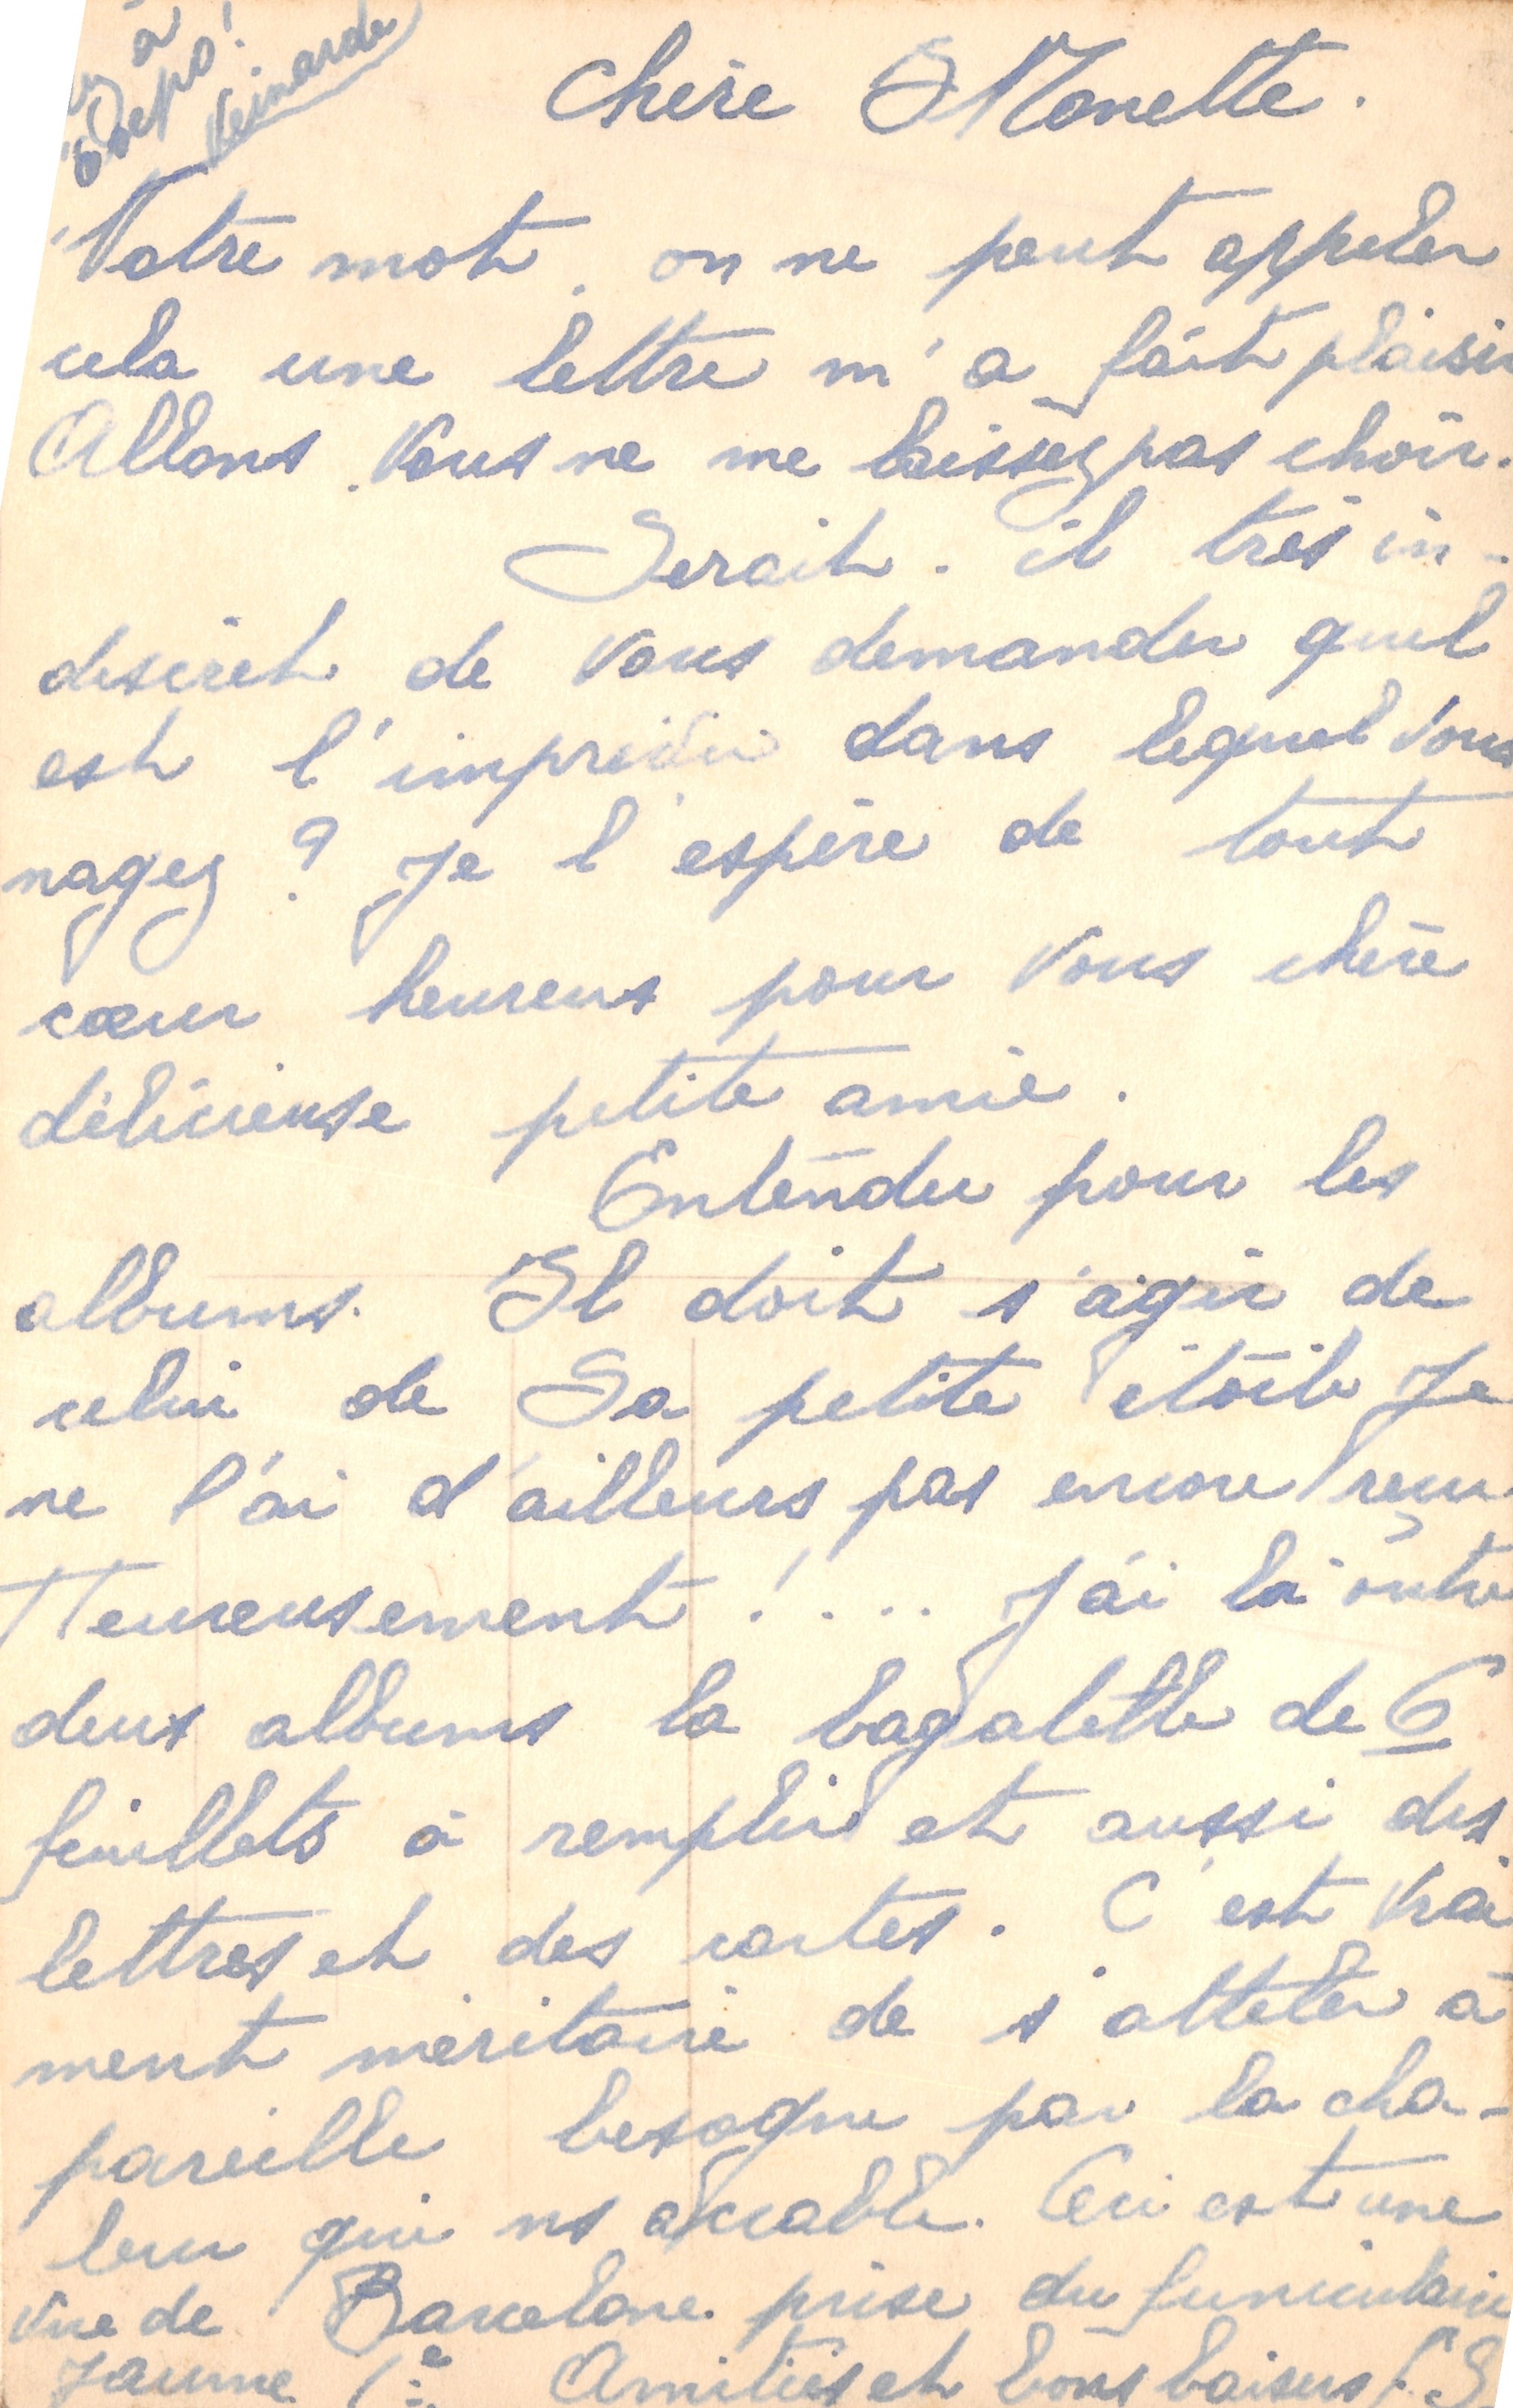 à
Keinarde
Chère Monette.
Votre mot, on ne peut appeler
cela une lettre m'a fait plaisir
Allons vous ne me laissez pas choir.
Serait-il très in-
discret de vous demander quel
est l'imprévu dans lequel vous
nagez ? Je l'espère de tout
cœur heureux pour vous chère
délicieuse petite amie.
Entendu pour les
albums. Il doit s'agir de
celui de Sa petite étoile Je
ne l'ai d'ailleurs pas encore reçu
Heureusement !... J'ai là outre
deux albums la bagatelle de 6
feuillets à remplir et aussi des
lettres et des cartes. C'est vrai
ment méritoire de s'atteler à
pareille besogne par la cha-
leur qui ns accable. Ceci est une
vue de Barcelone prise du funiculaire
Jaume 1er Amitiés et bons baisers